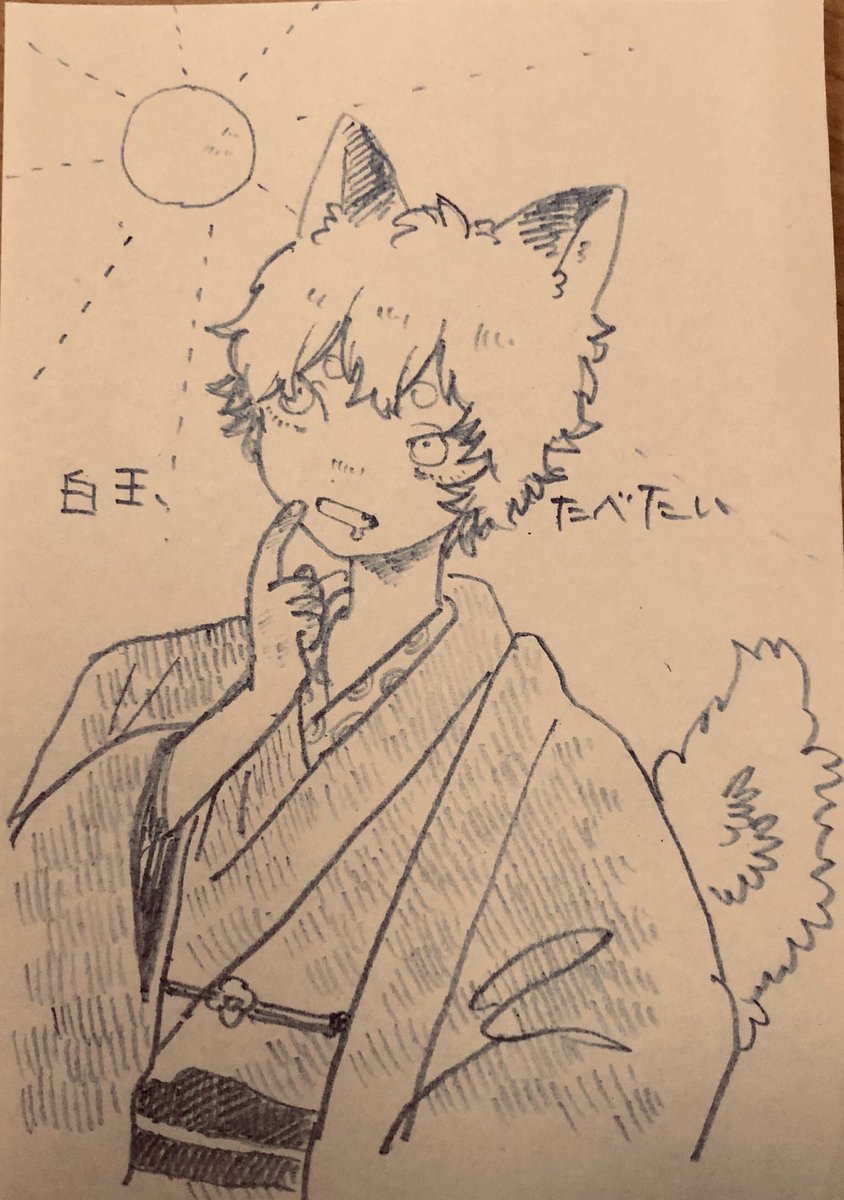 白玉、たべたい